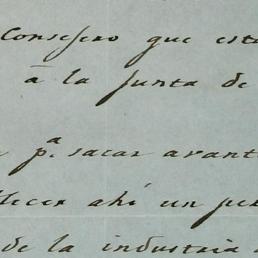 Consejero que est
á la Junta de
pª. sacar avant
lecer ahí un per
de la industria